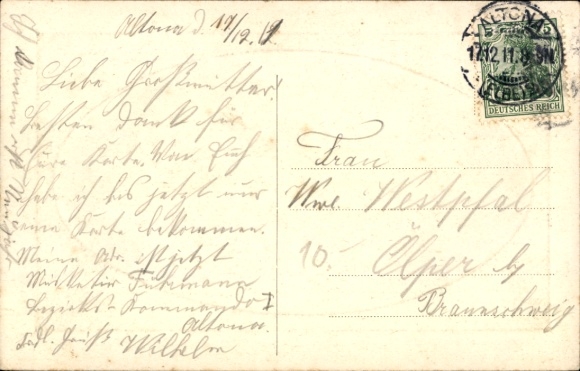 Altona d. 17/12.11
Liebe Großmutter.
Besten Dank für
Eure Karte. Von Euch
habe ich bis jetzt nur
eine Karte bekommen.
Meine Adr. ist jetzt
Militär Fuhrmann
Bezirks-Kommando I
Altona.
Frdl. Gruß
Wilhelm
ALTONA
17.12.11.8-9N.
(ELBE)
DEUTSCHES REICH
5
Frau
Wwe. Westpfal
10.
Ölper by
Braunschweig